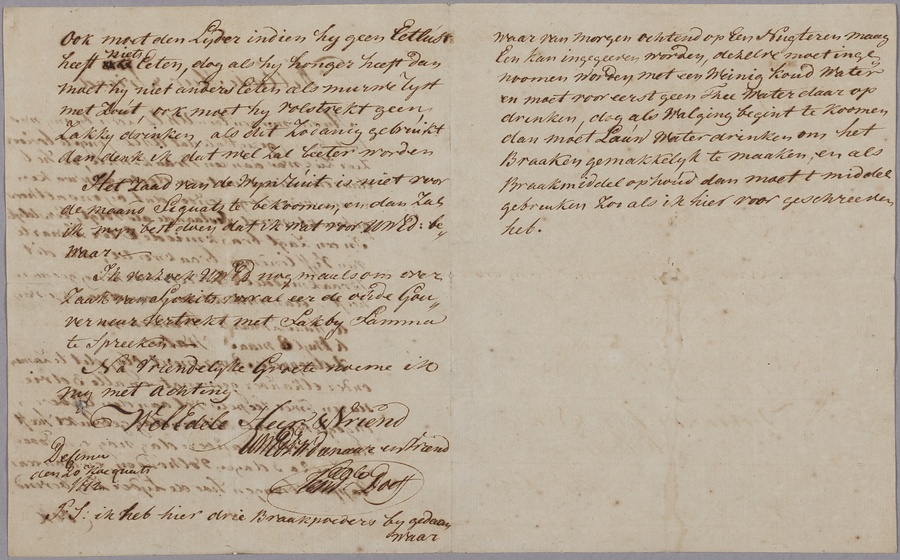 Ook moet den Lyder indien hy geen Eetlust
heeft niets Eeten, dog als hy honger heeft dan
moet hy niet anders Eeten als murwe Ryst
met Zout, ook moet hy volstrekt geen
Zakky drinken als dit Zodanig gebruikt
dan denk ik dat wel zal beeter worden
Het Zaad van de Wyn Ruit is niet voor
de maand te bekoomen, en dan Zal
ik myn best doen dat ik wat voor UWEd: be„
waar
Ik verzoek UWEd nog maals om over
Zaak van vooral eer de oude Gou„
verneur Vertrekt met Sakby Samma
te Spreeken
Na Vriendelyke Groete noeme ik
my met achting
WelEdele Heer & Vriend
UWEd: Dienaar en Vriend
Doeff
Desima
den 20
P:S: ik heb hier drie Braakpoeders by gedaan
waar
waar van morgen ochtend op Een Nugteren maag
Een kan ingegeeven worden, dezelve moet inge
noomen worden met een Weinig koud Water
en moet voor eerst geen Thee Water daar op
drinken, dog als Walging begint te koomen
dan moet Laúw Water drinken om het
Braaken gemakkelyk te maaken, en als
Braakmiddel ophoúd dan moet t middel
gebruiken Zoo als ik hier voor geschreeven
heb.